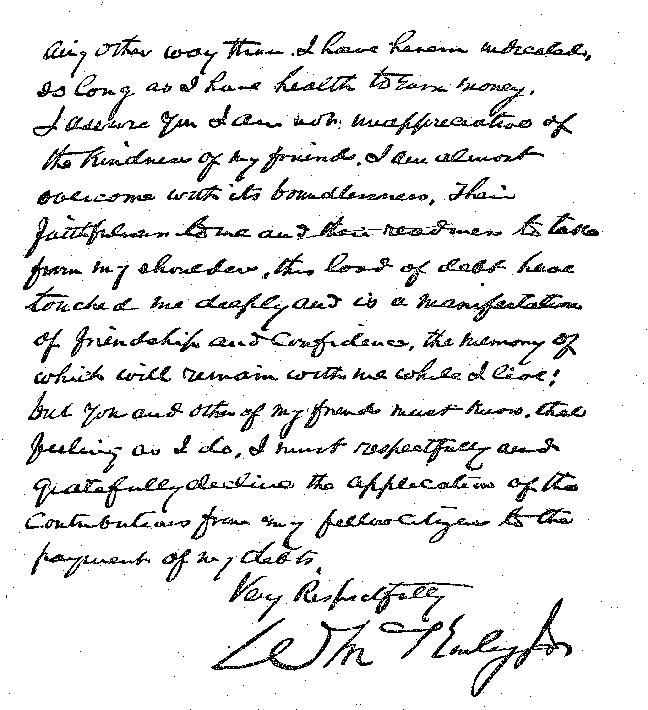 any other way than I have herein indicated,
so long as I have health to earn money.
I assure you I am not unappreciative of
the kindness of my friends. I am almost
overcome with its boundlessness, Their
faithfulness to me and their readiness to take
from my shoulders, this load of debt have
touched me deeply and is a manifestation
of friendship and confidence, the memory of
which will remain with me while I live;
but you and other of my friends must know, that
feeling as I do, I must respectfully and
gratefully decline the application of the
contributions from my fellow citizens to the
payment of my debts.
Very Respectfully
W McKinley Jr